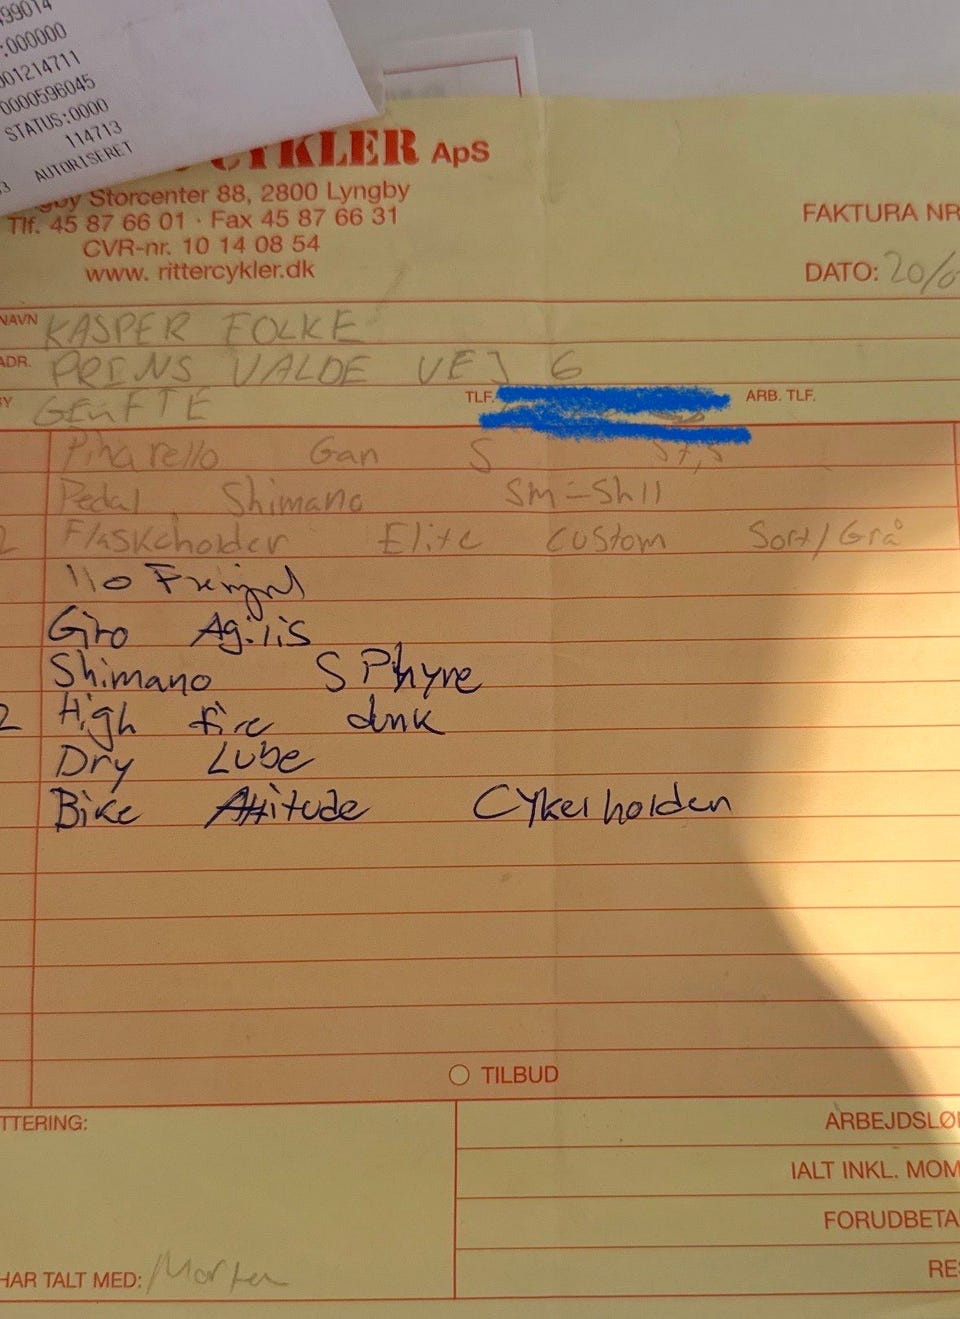 :000000
001214711
0000596045
STATUS:0000
114713
AUTORISERET
CYKLER ApS
Storcenter 88, 2800 Lyngby
Tlf. 45 87 66 01 · Fax 45 87 66 31
CVR-nr. 10 14 08 54
www. rittercykler.dk
FAKTURA NR
DATO: 20/
NAVN KASPER FOLKE
ADR. PRINS VALDE VEJ 6
GENFTE TLF. ARB. TLF.
Pinarello Gan S 57,5
Pedal Shimano SM-SH11
2 Flaskeholder Elite Custom Sort/Grå
110
Giro Agilis
Shimano S Phyre
2 High five dunk
Dry Lube
Bike Attitude Cykelholden
TILBUD
TTERING:
ARBEJDSLØ
IALT INKL. MOM
FORUDBETA
RES
HAR TALT MED: Morten